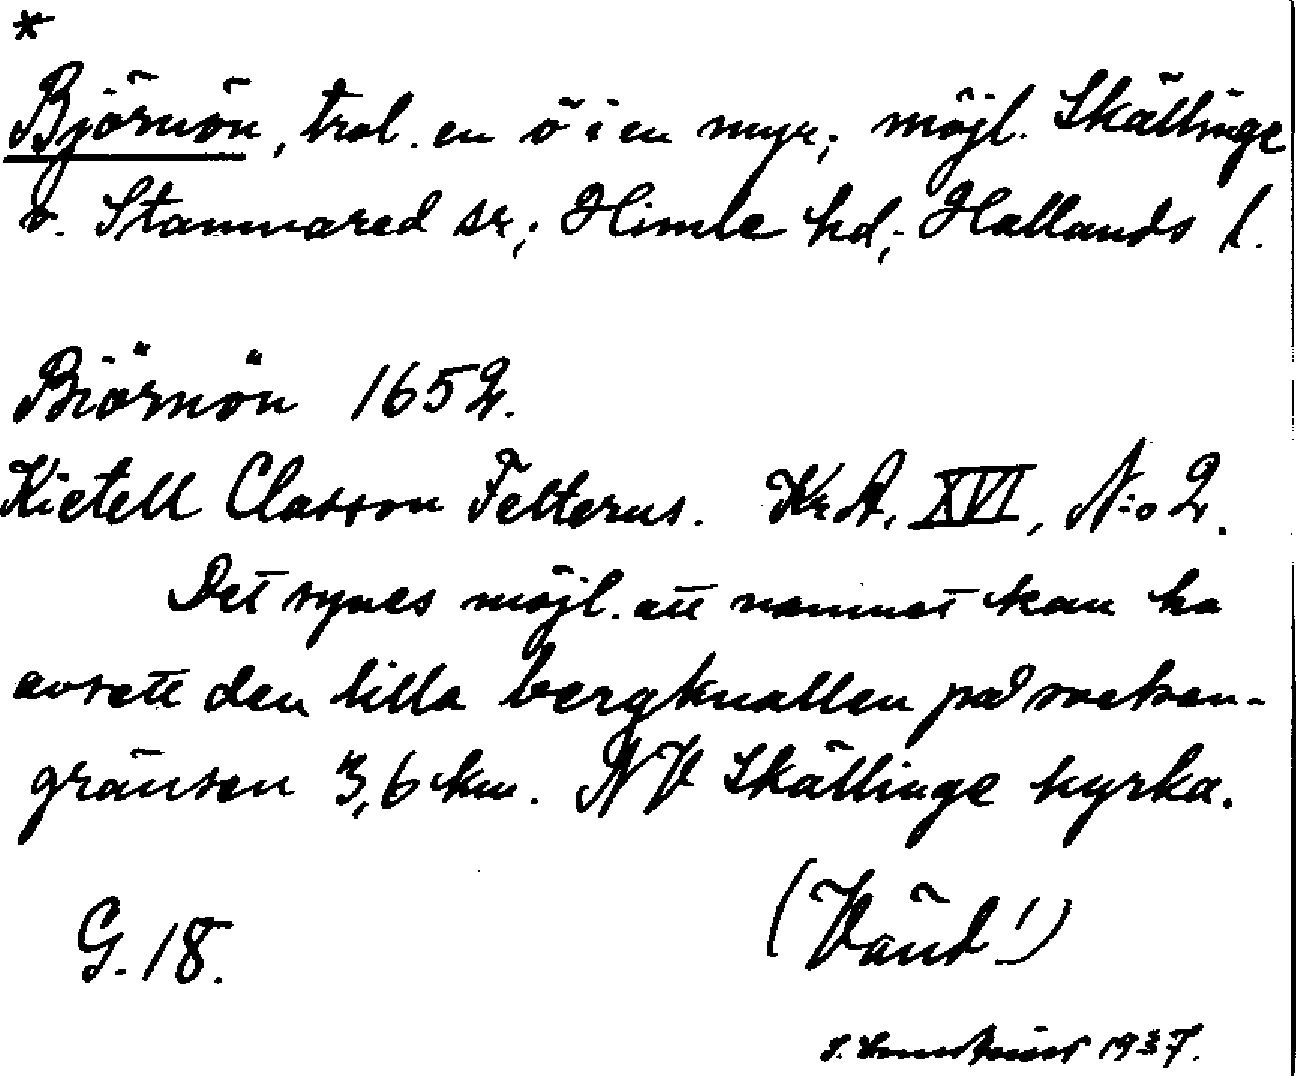 *
Björnön, trol. en ö i en myr; möjl. Skällinge
o. Stamnared sr; Himle hd; Hallands l.
Biörnön 1652.
Kietell Classon Felterus. Kr.A. XVI, N:o 2.
Det synes möjl. att namnet kan ha
avsett den lilla bergknallen på socken-
gränsen 3,6 km. NV Skällinge kyrka.
G. 18.
(Vänd!)
1937.